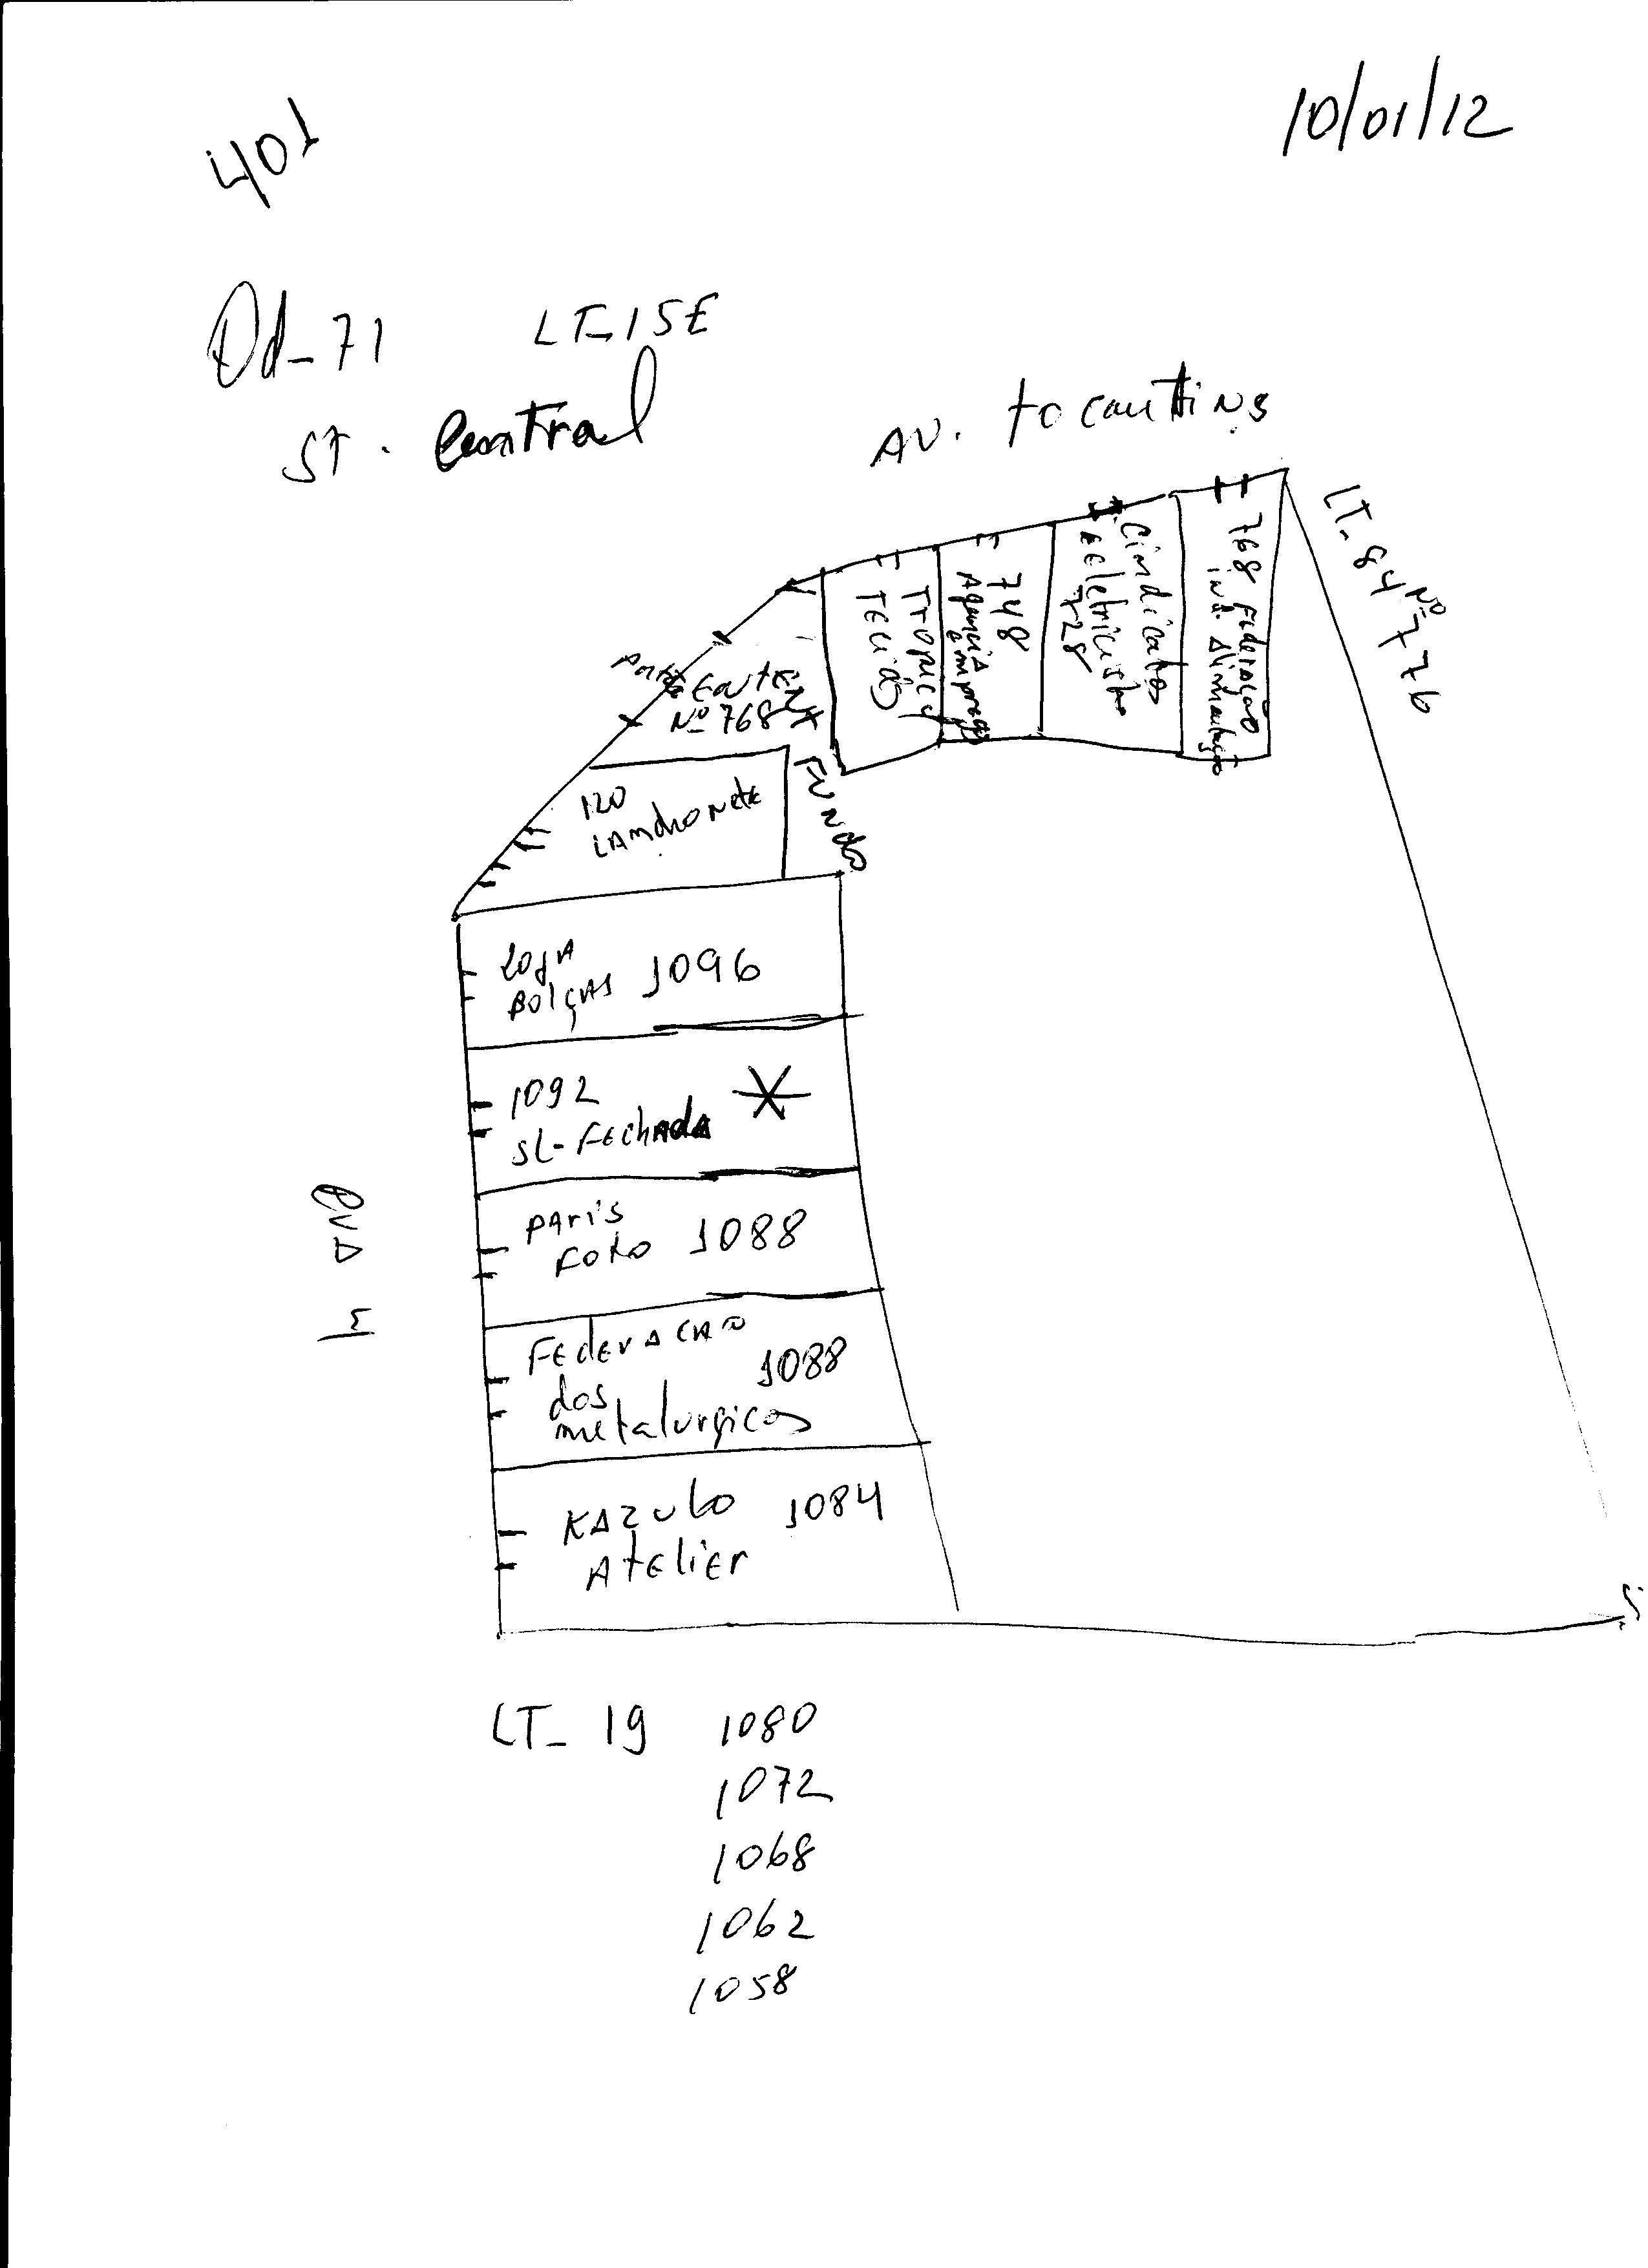 401
10/01/12
Qd-71 LT-15E
ST. Central
AV. tocantins
LT-84 Nº 776
768 Federação
ind. Alimentação
Cindicatos
Eeletricista
728
748
Agencia
emprego
Tropical
Tecidos
Porta Entera
Nº 768
Fundo
120
Lamchoneta
Loja
Bolças 1096
1092
SL-Fechada
Paris
Foto 1088
Federacao
dos 1088
metalurgicos
Kazulo 1084
Atelier
RUA 4
LT-19 1080
1072
1068
1062
1058